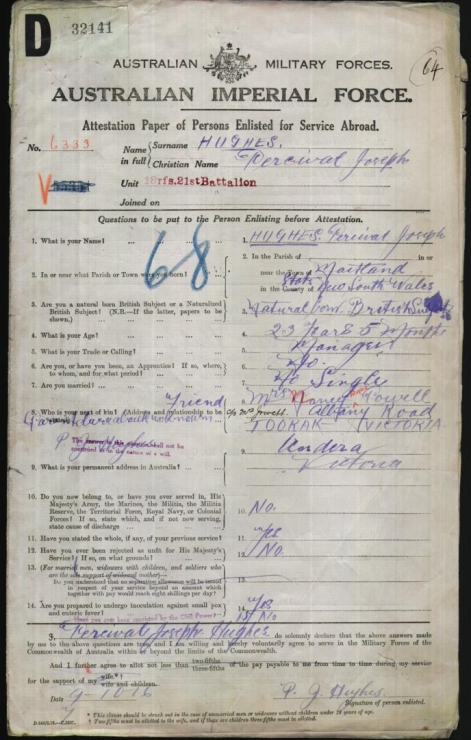 D
32141
64
AUSTRALIAN MILITARY FORCES.
AUSTRALIAN IMPERIAL FORCE.
Attestation Paper of Persons Enlisted for Service Abroad.
No. 6333
Name in full { Surname HUGHES.
Christian Name Percival Joseph
Unit 18rfs. 21st Battalion
Joined on
Questions to be put to the Person Enlisting before Attestation.
68
1. What is your Name? ... 1. HUGHES Percival Joseph
2. In or near what Parish or Town were you born? ... 2. In the Parish of in or
near the Town of Maitland
in the County of State New South Wales
3. Are you a natural born British Subject or a Naturalized British Subject? (N.B.—If the latter, papers to be shown.) 3. Natural born British Subject
4. What is your Age? ... 4. 23 Years 5 Months
5. What is your Trade or Calling? ... 5. Manager
6. Are you, or have you been, an Apprentice? If so, where, to whom, and for what period? 6. No.
7. Are you married? ... 7. No Single
8. Who is your next of kin? (Address and relationship to be stated) Friend 8. Mrs
Albany Road
TOORAK VICTORIA
9. What is your permanent address in Australia? ... 9. Undera
Victoria
10. Do you now belong to, or have you ever served in, His Majesty's Army, the Marines, the Militia, the Militia Reserve, the Territorial Force, Royal Navy, or Colonial Forces? If so, state which, and if not now serving, state cause of discharge ... 10. No.
11. Have you stated the whole, if any, of your previous service? 11. Yes
12. Have you ever been rejected as unfit for His Majesty's Service? If so, on what grounds? 12. No.
13. (For married men, widowers with children, and soldiers who are the sole support of widowed mother)—
Do you understand that no separation allowance will be issued in respect of your service beyond an amount which together with pay would reach eight shillings per day? 13.
14. Are you prepared to undergo inoculation against small pox and enteric fever? 14. Yes
No
I, Percival Joseph Hughes do solemnly declare that the above answers made
by me to the above questions are true, and I am willing and hereby voluntarily agree to serve in the Military Forces of the
Commonwealth of Australia within or beyond the limits of the Commonwealth.
And I further agree to allot not less than two-fifths three-fifths of the pay payable to me from time to time during my service
for the support of my wife.* wife and children.
Date 9-10-16 P. J. Hughes.
Signature of person enlisted.
* This clause should be struck out in the case of unmarried men or widowers without children under 18 years of age.
† Two-fifths must be allotted to the wife, and if there are children three-fifths must be allotted.